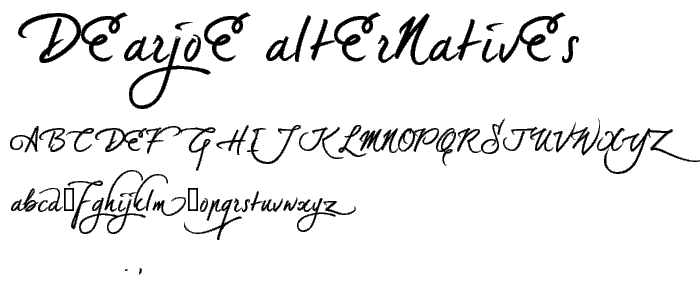 DEarjoE altErNativEs
ABCDEFGHIJKLMNOPQRSTUVWXYZ
abcd▯fghijklm▯opqrstuvwxyz
. ,